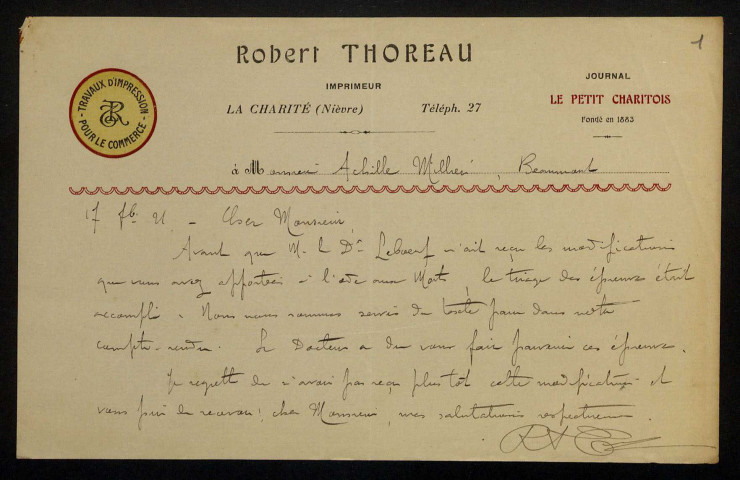 1
Robert THOREAU
IMPRIMEUR
LA CHARITÉ (Nièvre) Téléph. 27
JOURNAL
LE PETIT CHARITOIS
Fondé en 1883
TRAVAUX D'IMPRESSION
POUR LE COMMERCE
TR
à Monsieur Achille Millien, Beaumont
17 fb. 21 – Cher Monsieur,
Avant que M. le Dr Leboeuf n'ait reçu les modifications
que vous avez apportées à l'ode aux Morts, le tirage des épreuves était
accompli. Nous nous sommes servis du texte paru dans notre
compte-rendu. Le Docteur a du vous faire parvenir ces épreuves.
Je regrette de n'avoir pas reçu plus tôt cette modification et
vous prie de recevoir, cher Monsieur, mes salutations respectueuses.